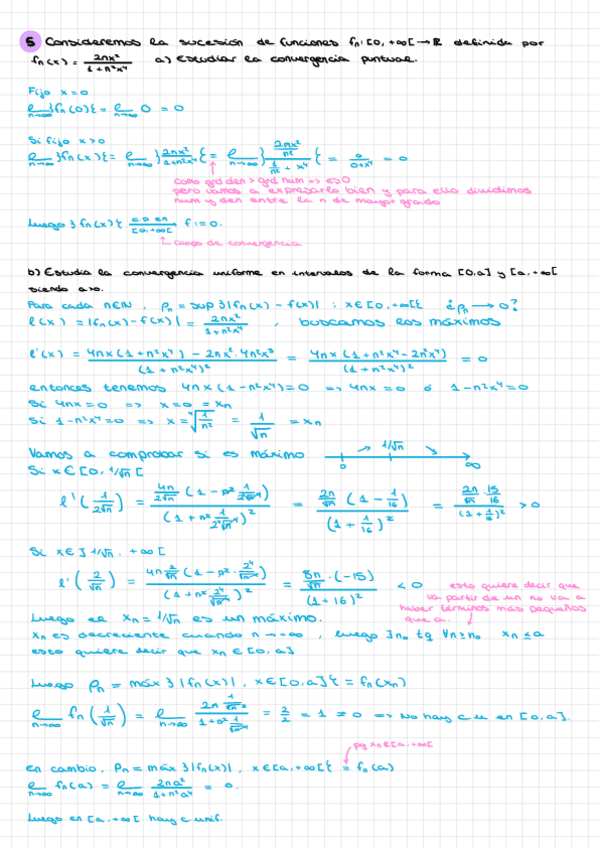 5 Consideremos la sucesión de funciones fn: [0,+∞[ → ℝ definida por
fn(x) = 2nx²/(1+n²x⁴) a) Estudiar la convergencia puntual.
Fijo x=0
lim n→∞ }fn(0){ = lim n→∞ 0 = 0
Si fijo x>0
lim n→∞ }fn(x){ = lim n→∞ }2nx²/(1+n²x⁴){ = lim n→∞ }(2nx²/n²)/(1/n² + x⁴){ = 0/(0+x⁴) = 0
como grd den > grd num => es 0
pero vamos a expresarlo bien y para ello dividimos
num y den entre la n de mayor grado
Luego }fn(x){ c.p en [0,+∞[ f: = 0.
campo de convergencia
b) Estudia la convergencia uniforme en intervalos de la forma [0,a] y [a,+∞[
siendo a>0.
Para cada n∈ℕ, ρn = sup }|fn(x) - f(x)| : x∈[0,+∞[{ ¿ρn → 0?
l(x) = |fn(x) - f(x)| = 2nx²/(1+n²x⁴) , buscamos los máximos
l'(x) = (4nx(1+n²x⁴) - 2nx²·4n²x³)/(1+n²x⁴)² = 4nx(1+n²x⁴-2n²x⁴)/(1+n²x⁴)² = 0
entonces tenemos 4nx(1-n²x⁴)=0 => 4nx=0 ó 1-n²x⁴=0
Si 4nx=0 => x=0 = xn
Si 1-n²x⁴=0 => x = ⁴√(1/n²) = 1/√n = xn
Vamos a comprobar si es máximo 0 1/√n ∞
Si x∈[0,1/√n[
l'(1/(2√n)) = (4n/(2√n) (1-n² 1/(2⁴n²)))/(1+n² 1/(2⁴n²))² = (2n/√n (1-1/16))/(1+1/16)² = (2n/√n · 15/16)/(1+1/16)² > 0
Si x∈]1/√n,+∞[
l'(2/√n) = (4n 2/√n (1-n²·2⁴/n²))/(1+n² 2⁴/n²)² = (8n/√n·(-15))/(1+16)² < 0
esto quiere decir que
va partir de un n₀ va a
haber términos más pequeños
que a.
Luego el xn = 1/√n es un máximo.
xn es decreciente cuando n→∞, luego ∃n₀ tq ∀n≥n₀ xn≤a
esto quiere decir que xn∈[0,a]
Luego ρn = máx }|fn(x)|, x∈[0,a]{ = fn(xn)
lim n→∞ fn(1/√n) = lim n→∞ (2n 1/√n²)/(1+n² 1/√n⁴) = 2/2 = 1 ≠ 0 => No hay c.u en [0,a].
pq xn∉[a,+∞[
en cambio, ρn = máx }|fn(x)|, x∈[a,+∞[{ = fn(a)
lim n→∞ fn(a) = lim n→∞ 2na²/(1+n²a⁴) = 0.
Luego en [a,+∞[ hay c unif.